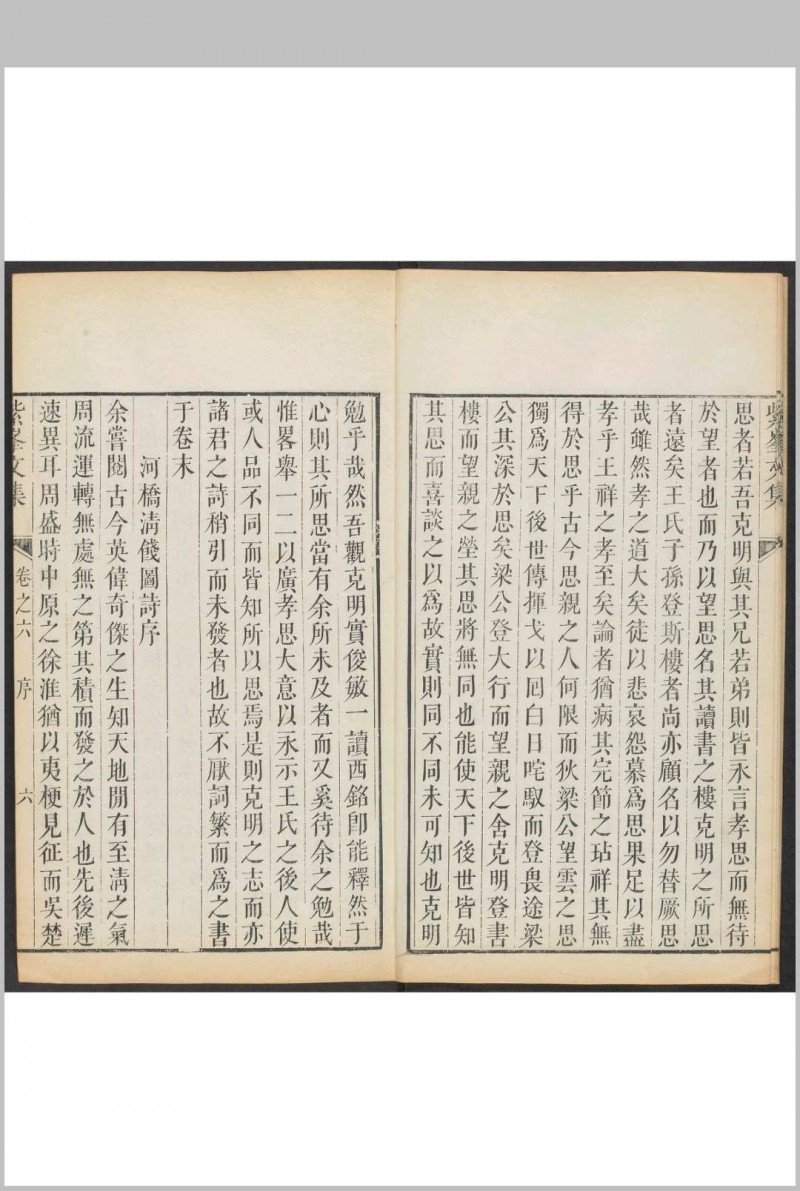 紫峯文集
思者若吾克明與其兄若弟則皆永言孝思而無待
於望者也而乃以望思名其讀書之樓克明之所思
者遠矣王氏子孫登斯樓者尚亦顧名以勿替厥思
哉雖然孝之道大矣徒以悲哀怨慕爲思果足以盡
孝乎王祥之孝至矣論者猶病其完節之玷祥其無
得於思乎古今思親之人何限而狄梁公望雲之思
獨爲天下後世傳揮戈以回白日咤馭而登畏途梁
公其深於思矣梁公登大行而望親之舍克明登書
樓而望親之塋其思將無同也能使天下後世皆知
其思而喜談之以爲故實則同不同未可知也克明
勉乎哉然吾觀克明實俊敏一讀西銘卽能釋然于
心則其所思當有余所未及者而又奚待余之勉哉
惟畧舉一二以廣孝思大意以永示王氏之後人使
或人品不同而皆知所以思焉是則克明之志而亦
諸君之詩稍引而未發者也故不厭詞繁而爲之書
于卷末
河橋淸餞圖詩序
余嘗閱古今英偉奇傑之生知天地閒有至淸之氣
周流運轉無處無之第其積而發之於人也先後遲
速異耳周盛時中原之徐淮猶以夷梗見征而吳楚
紫峯文集
卷之六
序
六